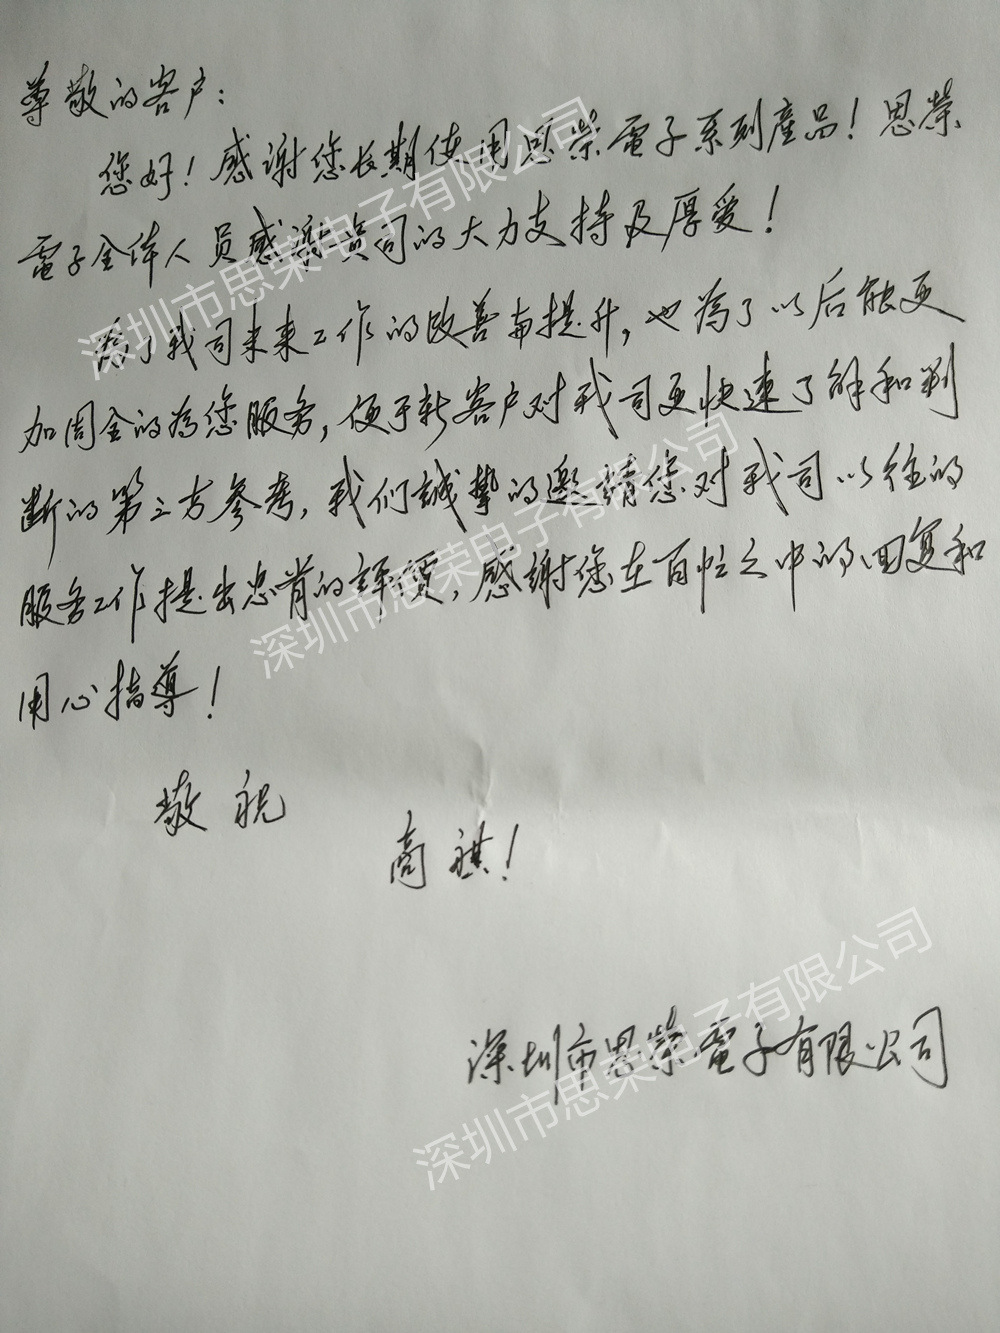 尊敬的客户：
您好！感谢您长期使用思榮電子系列產品！思榮
電子全体人员感谢贵司的大力支持及厚爱！
為了我司未来工作的改善与提升，也為了以后能更
加周全的為您服务，便于新客户对我司更快速了解和判
断的第三方参考，我们誠挚的邀請您对我司以往的
服务工作提出忠肯的評價，感謝您在百忙之中的回复和
用心指導！
敬祝
商祺！
深圳市思榮電子有限公司
深圳市思荣电子有限公司
深圳市思荣电子有限公司
深圳市思荣电子有限公司